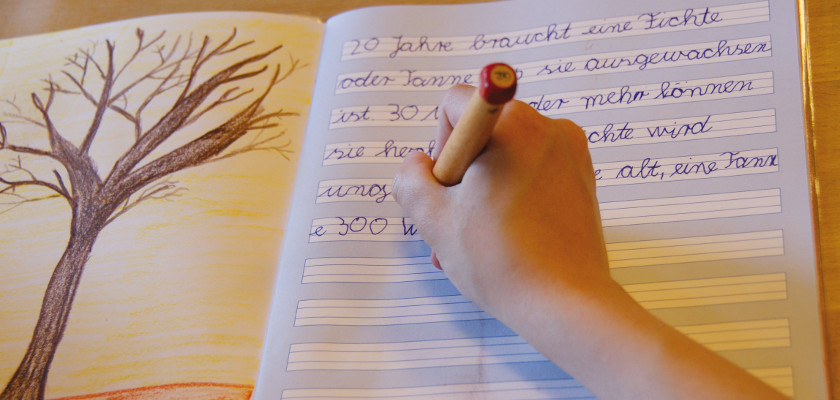 20 Jahre braucht eine Fichte
oder Tanne sie ausgewachsen
ist. 30 der mehr können
sie chte wird
ung e alt, eine Tann
e 300